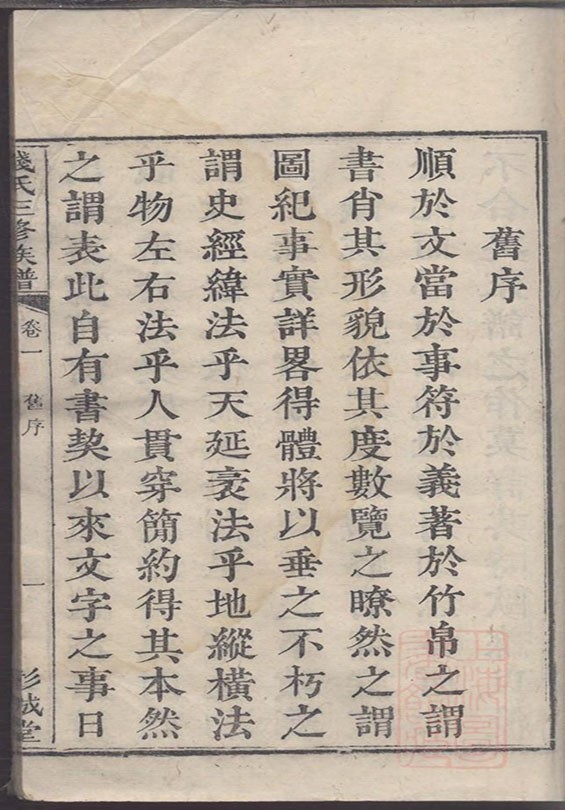 舊序
順於文當於事符於義著於竹帛之謂
書肖其形貌依其度數覽之瞭然之謂
圖紀事實詳畧得體將以垂之不朽之
謂史經緯法乎天延袤法乎地縱橫法
乎物左右法乎人貫穿簡約得其本然
之謂表此自有書契以來文字之事日
錢氏三修族譜
卷一
舊序
一
彭城堂